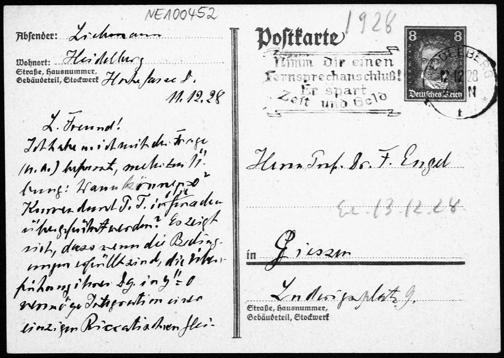 NE100452
1928
Absender: Liebmann
Wohnort: Heidelberg
Straße, Hausnummer,
Gebäudeteil, Stockwerk
11.12.28
L. Freund!
Ich habe mich mit der Frage
befasst,
bung: Wann können
Kurven durch P. T. in Geraden
übergeführt werden? Es zeigt
sich, dass wenn die Beding-
ungen erfüllt sind, die Über-
führung ihrer Dg. in y''=0
vermöge Integration einer
einzigen Riccatischen Glei-
Postkarte
Nimm dir einen
Fernsprechanschluß!
Er spart
Zeit und Geld
8 8
Deutsches Reich
HEIDELBERG
Herrn Prof. Dr. F. Engel
Er. 13.12.28
in Giessen
Ludwigsplatz 9.
Straße, Hausnummer,
Gebäudeteil, Stockwerk